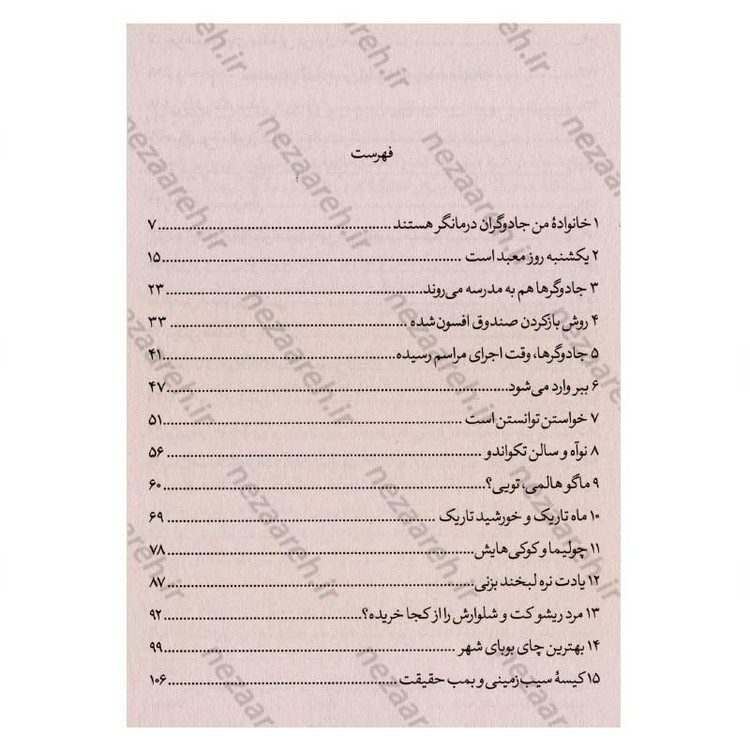 فهرست
۱ خانوادهٔ من جادوگران درمانگر هستند ........ ۷
۲ یکشنبه روز معبد است ........ ۱۵
۳ جادوگرها هم به مدرسه می‌روند ........ ۲۳
۴ روش بازکردن صندوق افسون‌شده ........ ۳۳
۵ جادوگرها، وقت اجرای مراسم رسیده ........ ۴۱
۶ ببر وارد می‌شود ........ ۴۷
۷ خواستن توانستن است ........ ۵۱
۸ نوآه و سالن تکواندو ........ ۵۶
۹ ماگو هالمی، تویی؟ ........ ۶۰
۱۰ ماه تاریک و خورشید تاریک ........ ۶۹
۱۱ چولیما و کوکی‌هایش ........ ۷۸
۱۲ یادت نره لبخند بزنی ........ ۸۷
۱۳ مرد ریشو کت و شلوارش را از کجا خریده؟ ........ ۹۲
۱۴ بهترین چای بوبای شهر ........ ۹۹
۱۵ کیسهٔ سیب‌زمینی و بمب حقیقت ........ ۱۰۶
nezaareh.ir